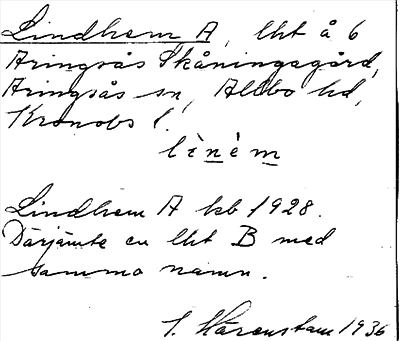 Lindhem A, lht å 6
Aringsås Skåningagård,
Aringsås sn, Allbo hd,
Kronobs l.
lìnèm
Lindhem A kb 1928.
Därjämte en lht B med
samma namn.
S. Härenstam 1936